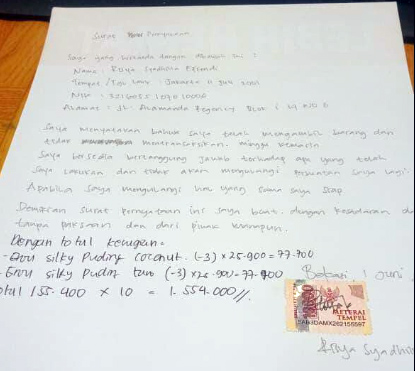 Surat Pernyataan
Saya yang bertanda tangan dibawah ini :
Nama : Syadhira Efendi
Tempat / Tgl lahir : Jakarta 11 Juni
NIK :
Alamat : Jl. Alamanda Regency Blok
Saya menyatakan bahwa saya telah mengambil barang dan
tidak mentransaksikan. minggu kemarin
Saya bersedia bertanggung jawab terhadap apa yang telah
saya lakukan dan tidak akan mengulangi perbuatan saya lagi.
Apabila saya mengulangi hal yang sama saya siap
Demikian surat pernyataan ini saya buat. dengan kesadaran
tanpa paksaan dan dari pihak manapun.
Dengan total kerugian =
silky puding coconut. (-3) × 25.900 = 77.700
silky puding taro (-3) × 25.900 = 77.700
155.400 × 10 = 1.554.000 //.
Bekasi, 1 Juni
METERAI
TEMPEL
Syadhira